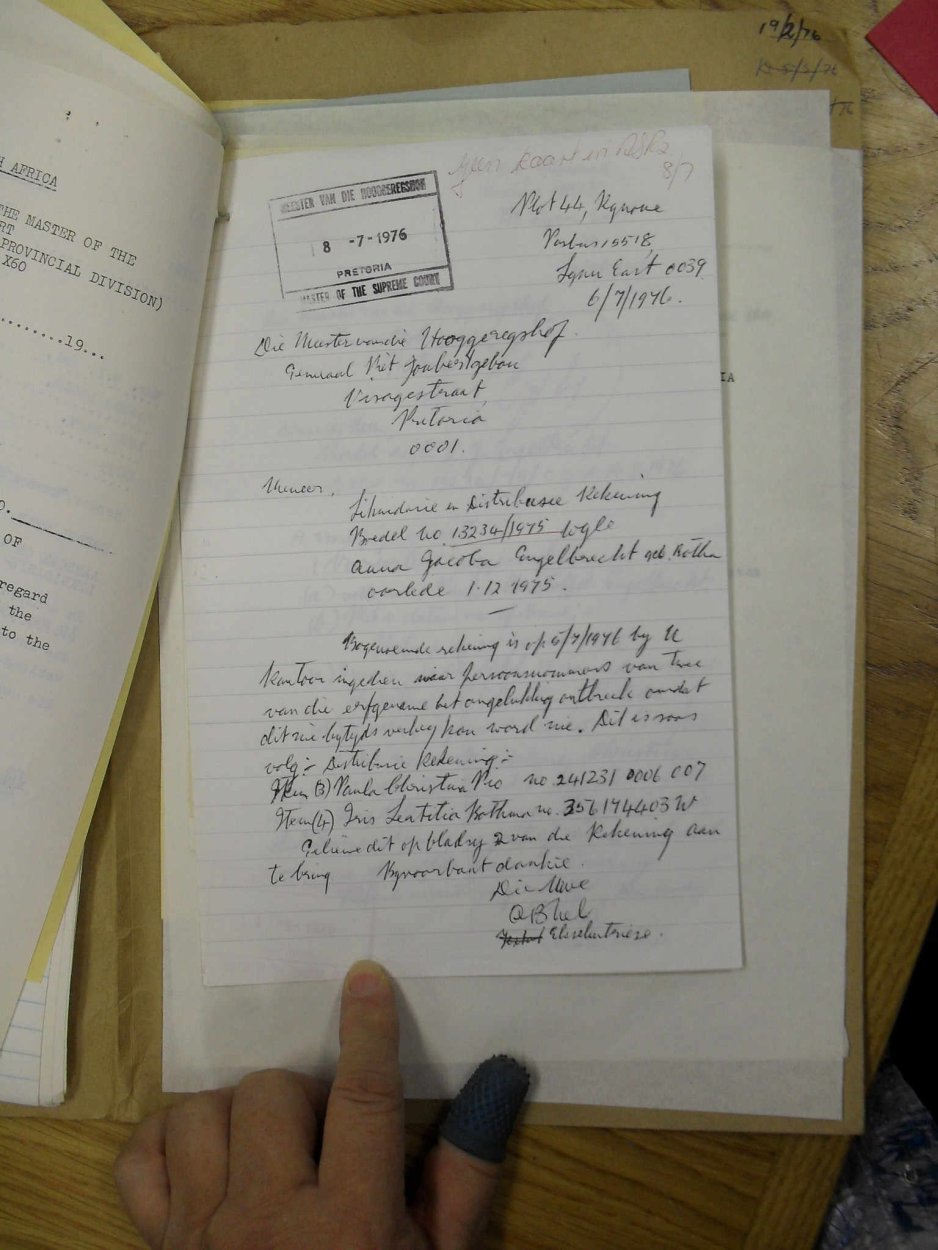 19/2/76
H AFRICA
THE MASTER OF THE
RT
PROVINCIAL DIVISION)
X60
..........19...
O.
OF
regard
the
to the
IA
Geen kaart in
8/7
MEESTER VAN DIE HOOGGEREGSHOF
8 -7-1976
PRETORIA
MASTER OF THE SUPREME COURT
Plot 44,
Posbus 15518,
Lynn East 0039
6/7/1976.
Die Meester van die Hooggeregshof.
Generaal Piet Joubertgebou
Visagestraat,
Pretoria
0001.
Meneer,
Likwidasie en Distribusie Rekening
Boedel no 13234/1975 wyle
Anna Jacoba Engelbrecht geb. Botha
oorlede 1.12.1975.
Bogenoemde rekening is op 5/7/1976 by U
kantoor ingedien maar persoonsnommers van twee
van die erfgename het ongelukkig ontbreek omdat
dit nie bytyds verkry kon word nie. Dit is soos
volg:- Distribusie Rekening:-
Item (3) Paula Christina no 241231 0006 007
Item (4) Iris Leatitia Bothma no. 356174403 W
Geliewe dit op bladsy 2 van die Rekening aan
te bring Byvoorbaat dankie.
Die Uwe
Eksekutriese.